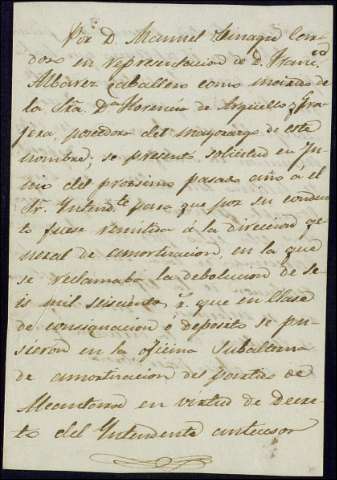 Por D. Manuel
dova en representacion de D. Franc.co
Albarez Caballero como marido de
la Sra. D.ª Florencia de Arguello y Gra
jera, poseedora del mayorazgo de este
nombre; se presentó solicitud en Ju
nio del procsimo pasado año a el
Sr. Intend.te para que por su conduc
to fuese remitida á la direccion ge
neral de amortizacion, en la que
se reclamaba la debolucion de se
is mil seiscientos r.s que en clase
de consignacion ó deposito se pu
sieron en la oficina subalterna
de amortizacion del partido de
Alcantara en virtud de Decre
to del Intendente antecesor